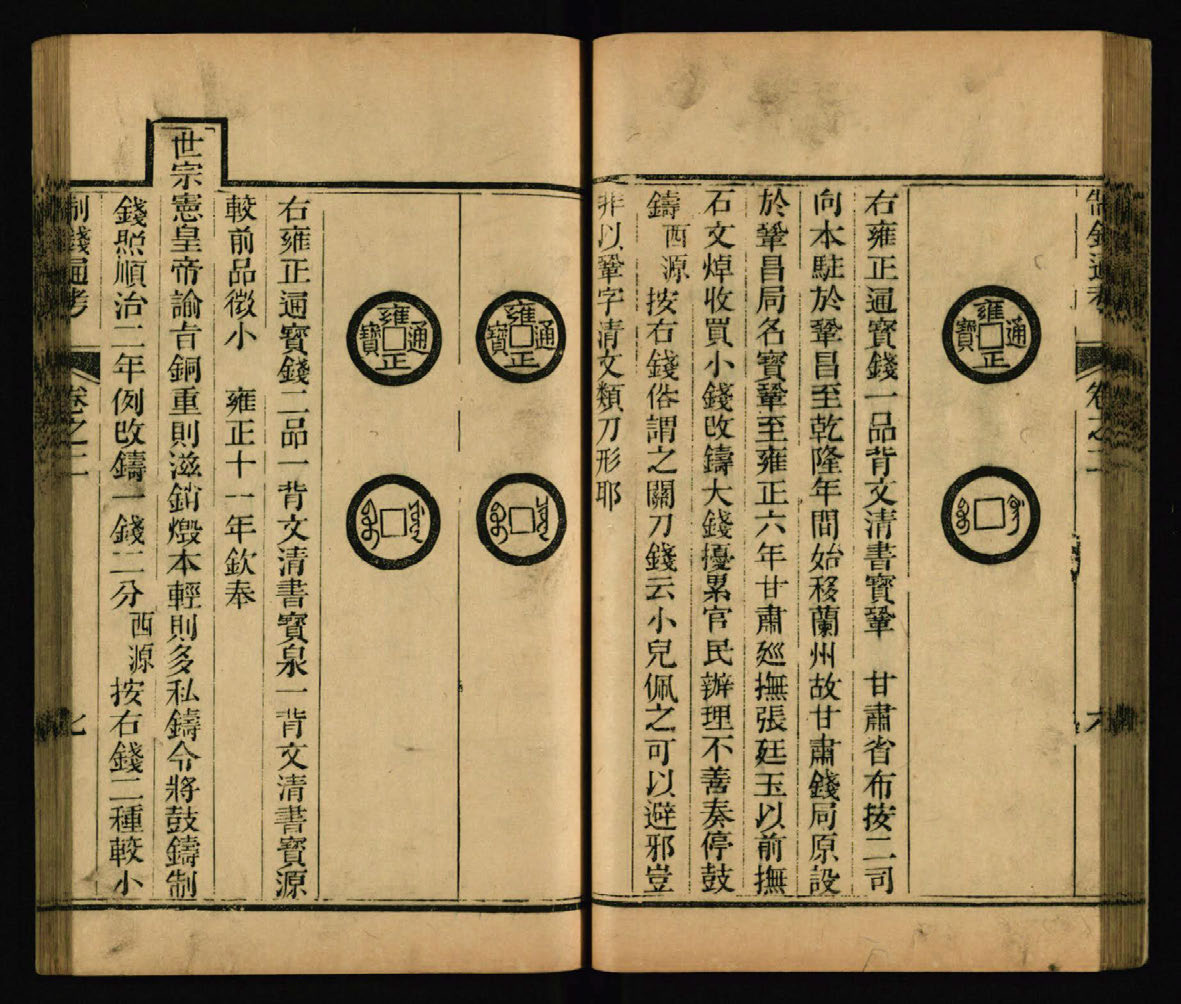 制錢通考
卷之二
六
雍正通寶
右雍正通寶錢一品背文清書寶鞏　甘肅省布按二司
向本駐於鞏昌至乾隆年間始移蘭州故甘肅錢局原設
於鞏昌局名寶鞏至雍正六年甘肅廵撫張廷玉以前撫
石文焯收買小錢改鑄大錢擾累官民辦理不善奏停鼓
鑄 西源 按右錢俗謂之關刀錢云小兒佩之可以避邪豈
非以鞏字清文類刀形耶
雍正通寶
雍正通寶
右雍正通寶錢二品一背文清書寶泉一背文清書寶源
較前品微小　雍正十一年欽奉
世宗憲皇帝諭旨銅重則滋銷燬本輕則多私鑄令將鼓鑄制
錢照順治二年例改鑄一錢二分 西源 按右錢二種較小
制錢通考
卷之二
七